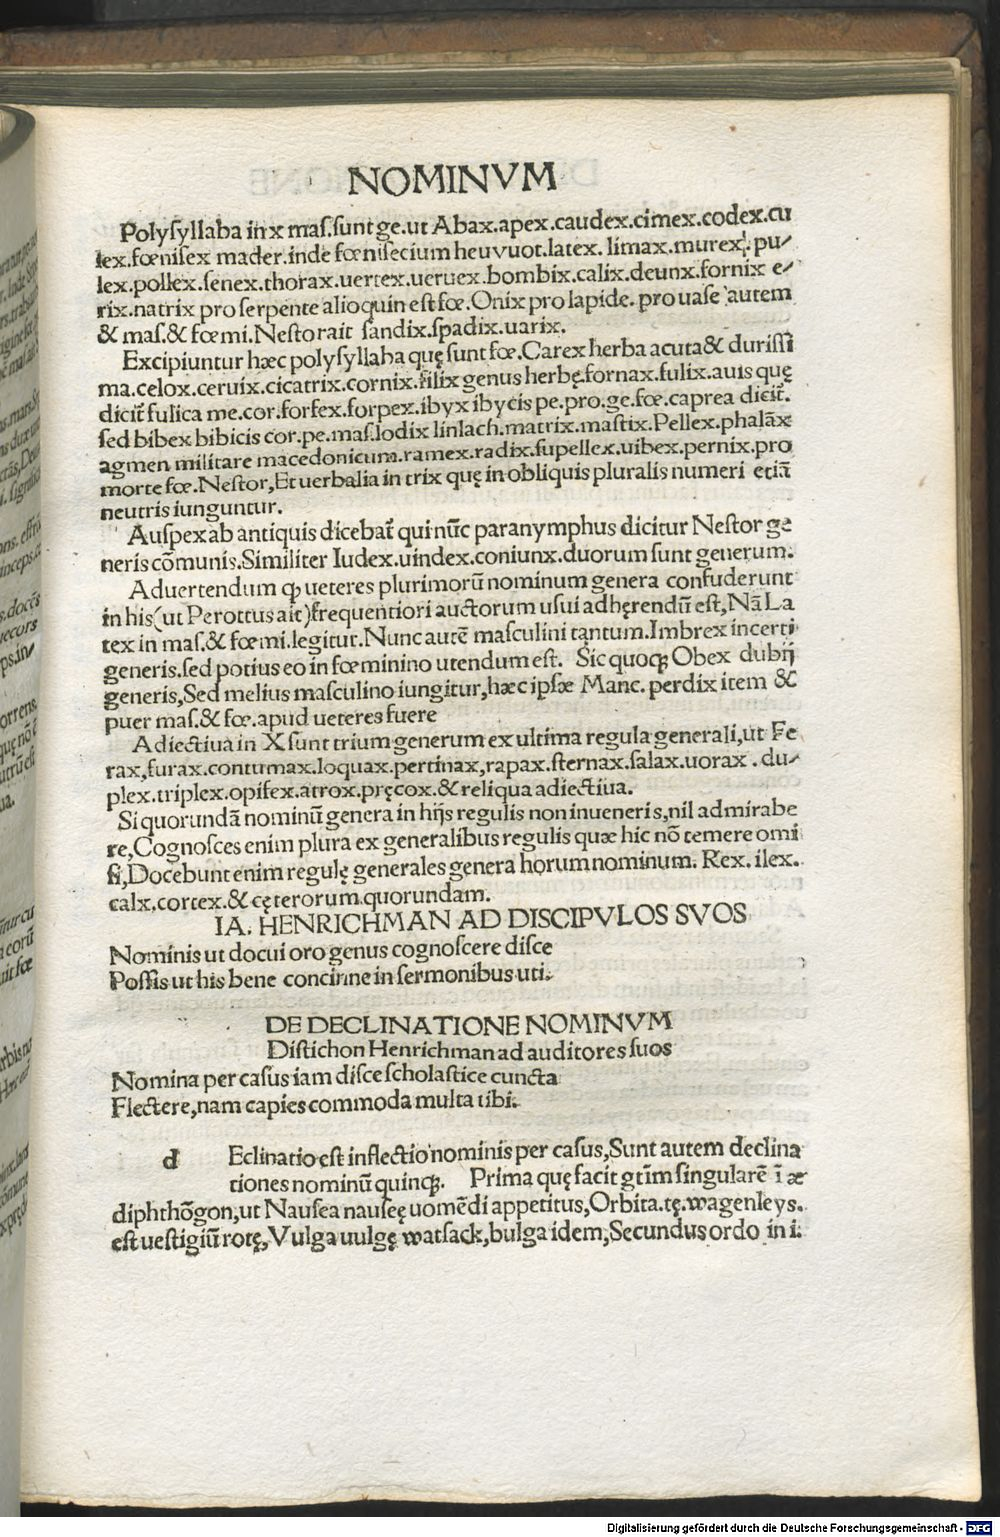 NOMINVM
Polyſyllaba in x maſ.ſunt ge.ut Abax.apex.caudex.cimex.codex.cu
lex.fœniſex mader.inde fœniſecium heuvuot.latex. limax.murex. pu⸗
lex.pollex.ſenex.thorax.uertex.ueruex.bombix.calix.deunx.fornix e⸗
rix.natrix pro ſerpente alioquin eſt fœ.Onix pro lapide. pro uaſe autem
& maſ.& fœmi.Neſtorait ſandix.ſpadix.uarix.
Excipiuntur hæc polyſyllaba quę ſunt fœ.Carex herba acuta & duriſſi
ma.celox.ceruix.cicatrix.cornix.filix genus herbę.fornax.fulix.auis quę
dicit᷑ fulica me.cor.forfex.forpex.ibyx ibycis pe.pro.ge.fœ.caprea dicit᷑.
ſed bibex bibicis cor.pe.maſ.lodix linlach.matrix.maſtix.Pellex.phalãx
agmen militare macedonicum.ramex.radix.ſupellex.uibex.pernix.pro
morte fœ.Neſtor,Et uerbalia in trix quę in obliquis pluralis numeri etiã
neutris iunguntur.
Auſpex ab antiquis dicebat᷑ qui nũc paranymphus dicitur Neſtor ge
neris cõmunis.Similiter Iudex.uindex.coniunx.duorum ſunt generum.
Aduertendum ꝙ ueteres plurimorũ nominum genera confuderunt
in his(ut Perottus ait)frequentiori auctorum uſui adhęrendũ eſt,Nã La
tex in maſ.& fœmi.legitur.Nunc autẽ maſculini tantum.Imbrex incerti
generis.ſed potius eo in fœminino utendum eſt. Sic quoqꝫ Obex dubij
generis,Sed melius maſculino iungitur,hæc ipſæ Manc. perdix item &
puer maſ.& fœ.apud ueteres fuere
Adiectiua in X ſunt trium generum ex ultima regula generali,ut Fe
rax,furax.contumax.loquax.pertinax,rapax.ſternax.ſalax.uorax . du⸗
plex.triplex.opifex.atrox.pręcox.& reliqua adiectiua.
Si quorundã nominũ genera in hijs regulis non inueneris,nil admirabe
re,Cognoſces enim plura ex generalibus regulis quæ hic nõ temere omi
ſi,Docebunt enim regulę generales genera horum nominum. Rex. ilex.
calx.cortex.& cęterorum quorundam.
IA. HENRICHMAN AD DISCIPVLOS SVOS
Nominis ut docui oro genus cognoſcere diſce
Poſſis ut his bene concinne in ſermonibus uti.
DE DECLINATIONE NOMINVM
Diſtichon Henrichman ad auditores ſuos
Nomina per caſus iam diſce ſcholaſtice cuncta
Flectere,nam capies commoda multa tibi.
d Eclinatio eſt inflectio nominis per caſus,Sunt autem declina
tiones nominũ quinqꝫ. Prima quę facit gtĩm ſingularẽ ĩ æ
diphthõgon,ut Nauſea nauſeę uomẽdi appetitus,Orbita.tę.wagenleys.
eſt ueſtigiũ rotę,Vulga uulgę watſack,bulga idem,Secundus ordo in i.
Digitalisierung gefördert durch die Deutsche Forschungsgemeinschaft - DFG